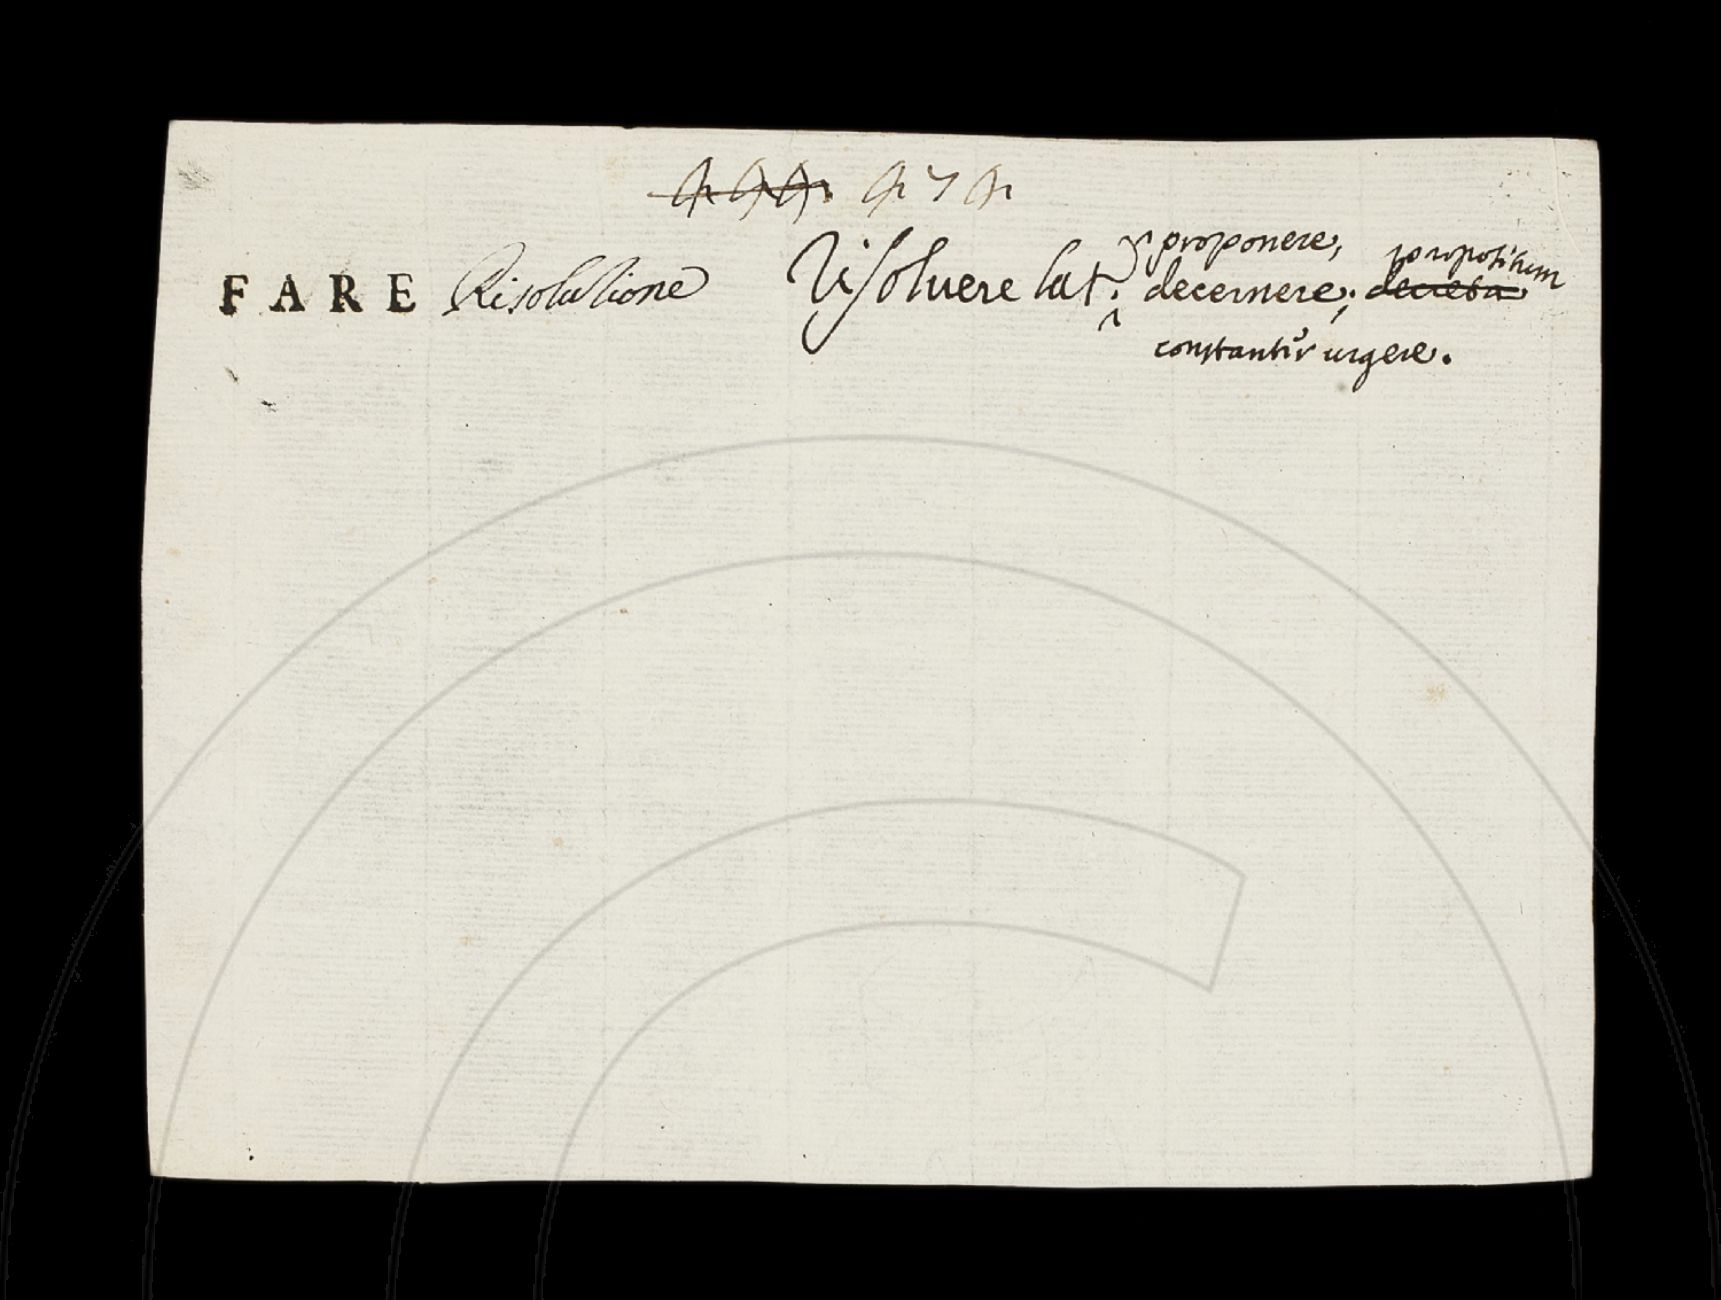 474
FARE Risolutione Risoluere lat. proponere, decernere; propositum
constanter urgere.